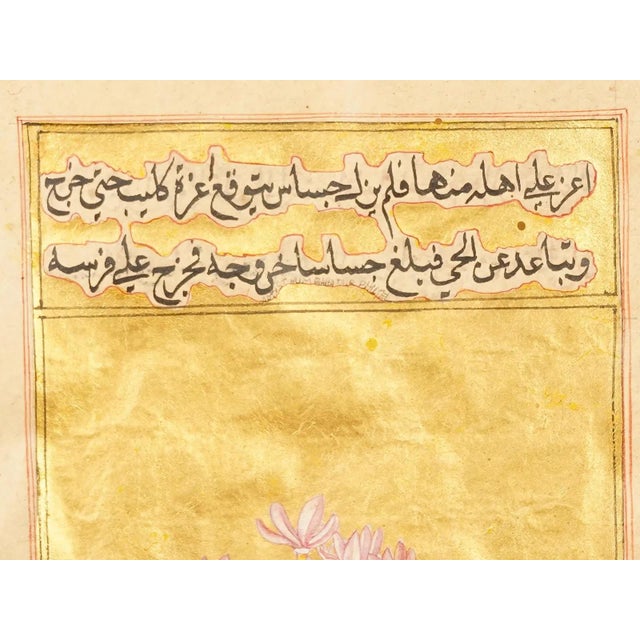 اعز علي اهله منها فلم يزل جساس يتوقع اعزة كليب حتي خرج
وتباعد عن الحي فبلغ جساسا خروجه فخرج علي فرسه